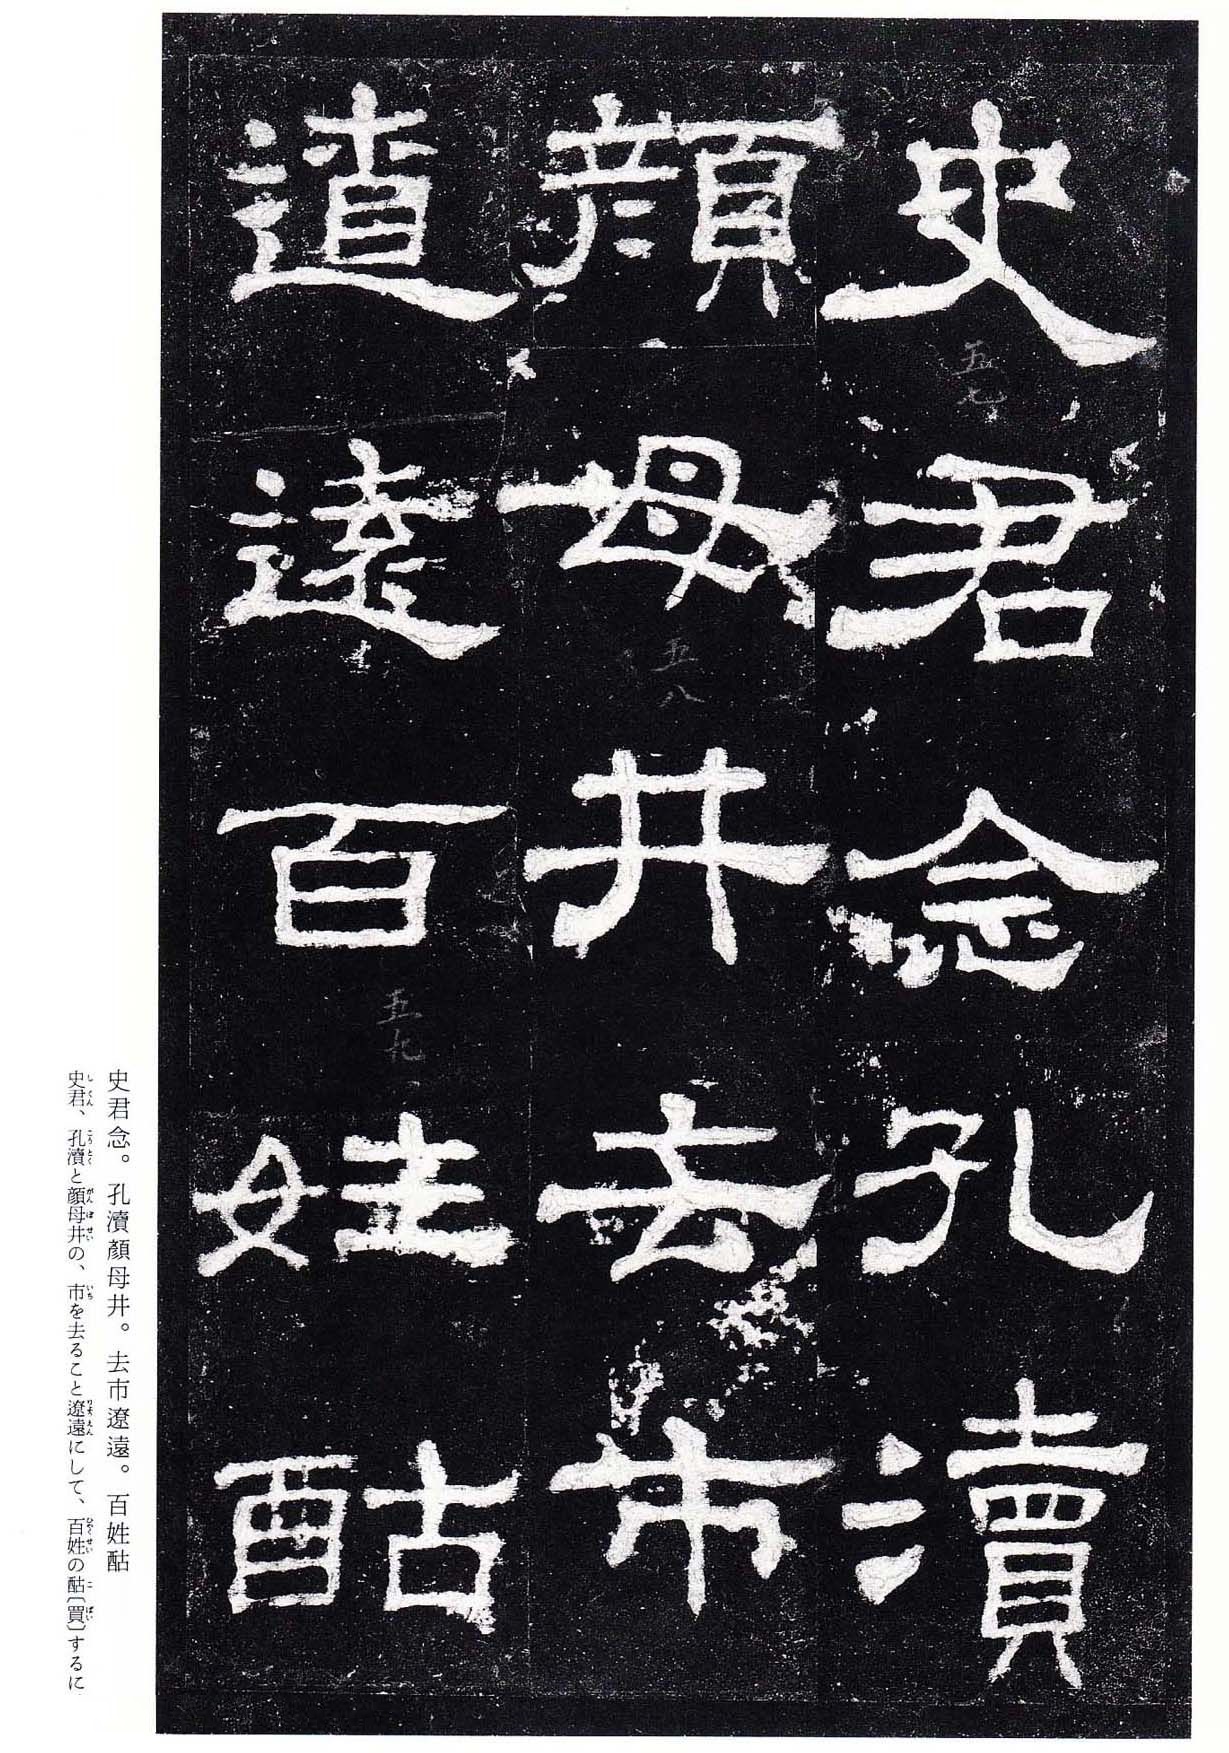 史君念孔瀆
五七
顏母井去市
五八
遼遠百姓酤
五九
史君念。孔瀆顏母井。去市遼遠。百姓酤
史君、孔瀆と顏母井の、市を去ること遼遠にして、百姓の酤〔買〕するに